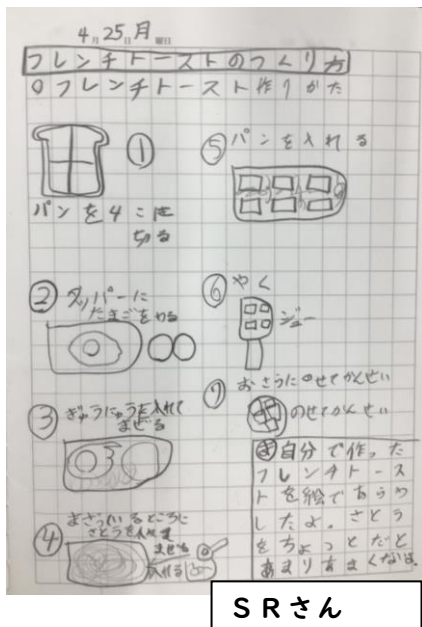 4月25日月曜日
フレンチトーストのつくり方
○フレンチトースト作りかた
①
パンを4こに
切る
②タッパーに
たまごをわる
③ぎゅうにゅうを入れて
まぜる
④
さとうを入れて
まぜる
入れる
⑤パンを入れる
⑥やく
ジュー
⑦おさらにのせてかんせい
のせてかんせい
自分で作った
フレンチトース
トを絵であらわ
したよ。さとう
をちょっとだと
あまりあまくないよ
SRさん